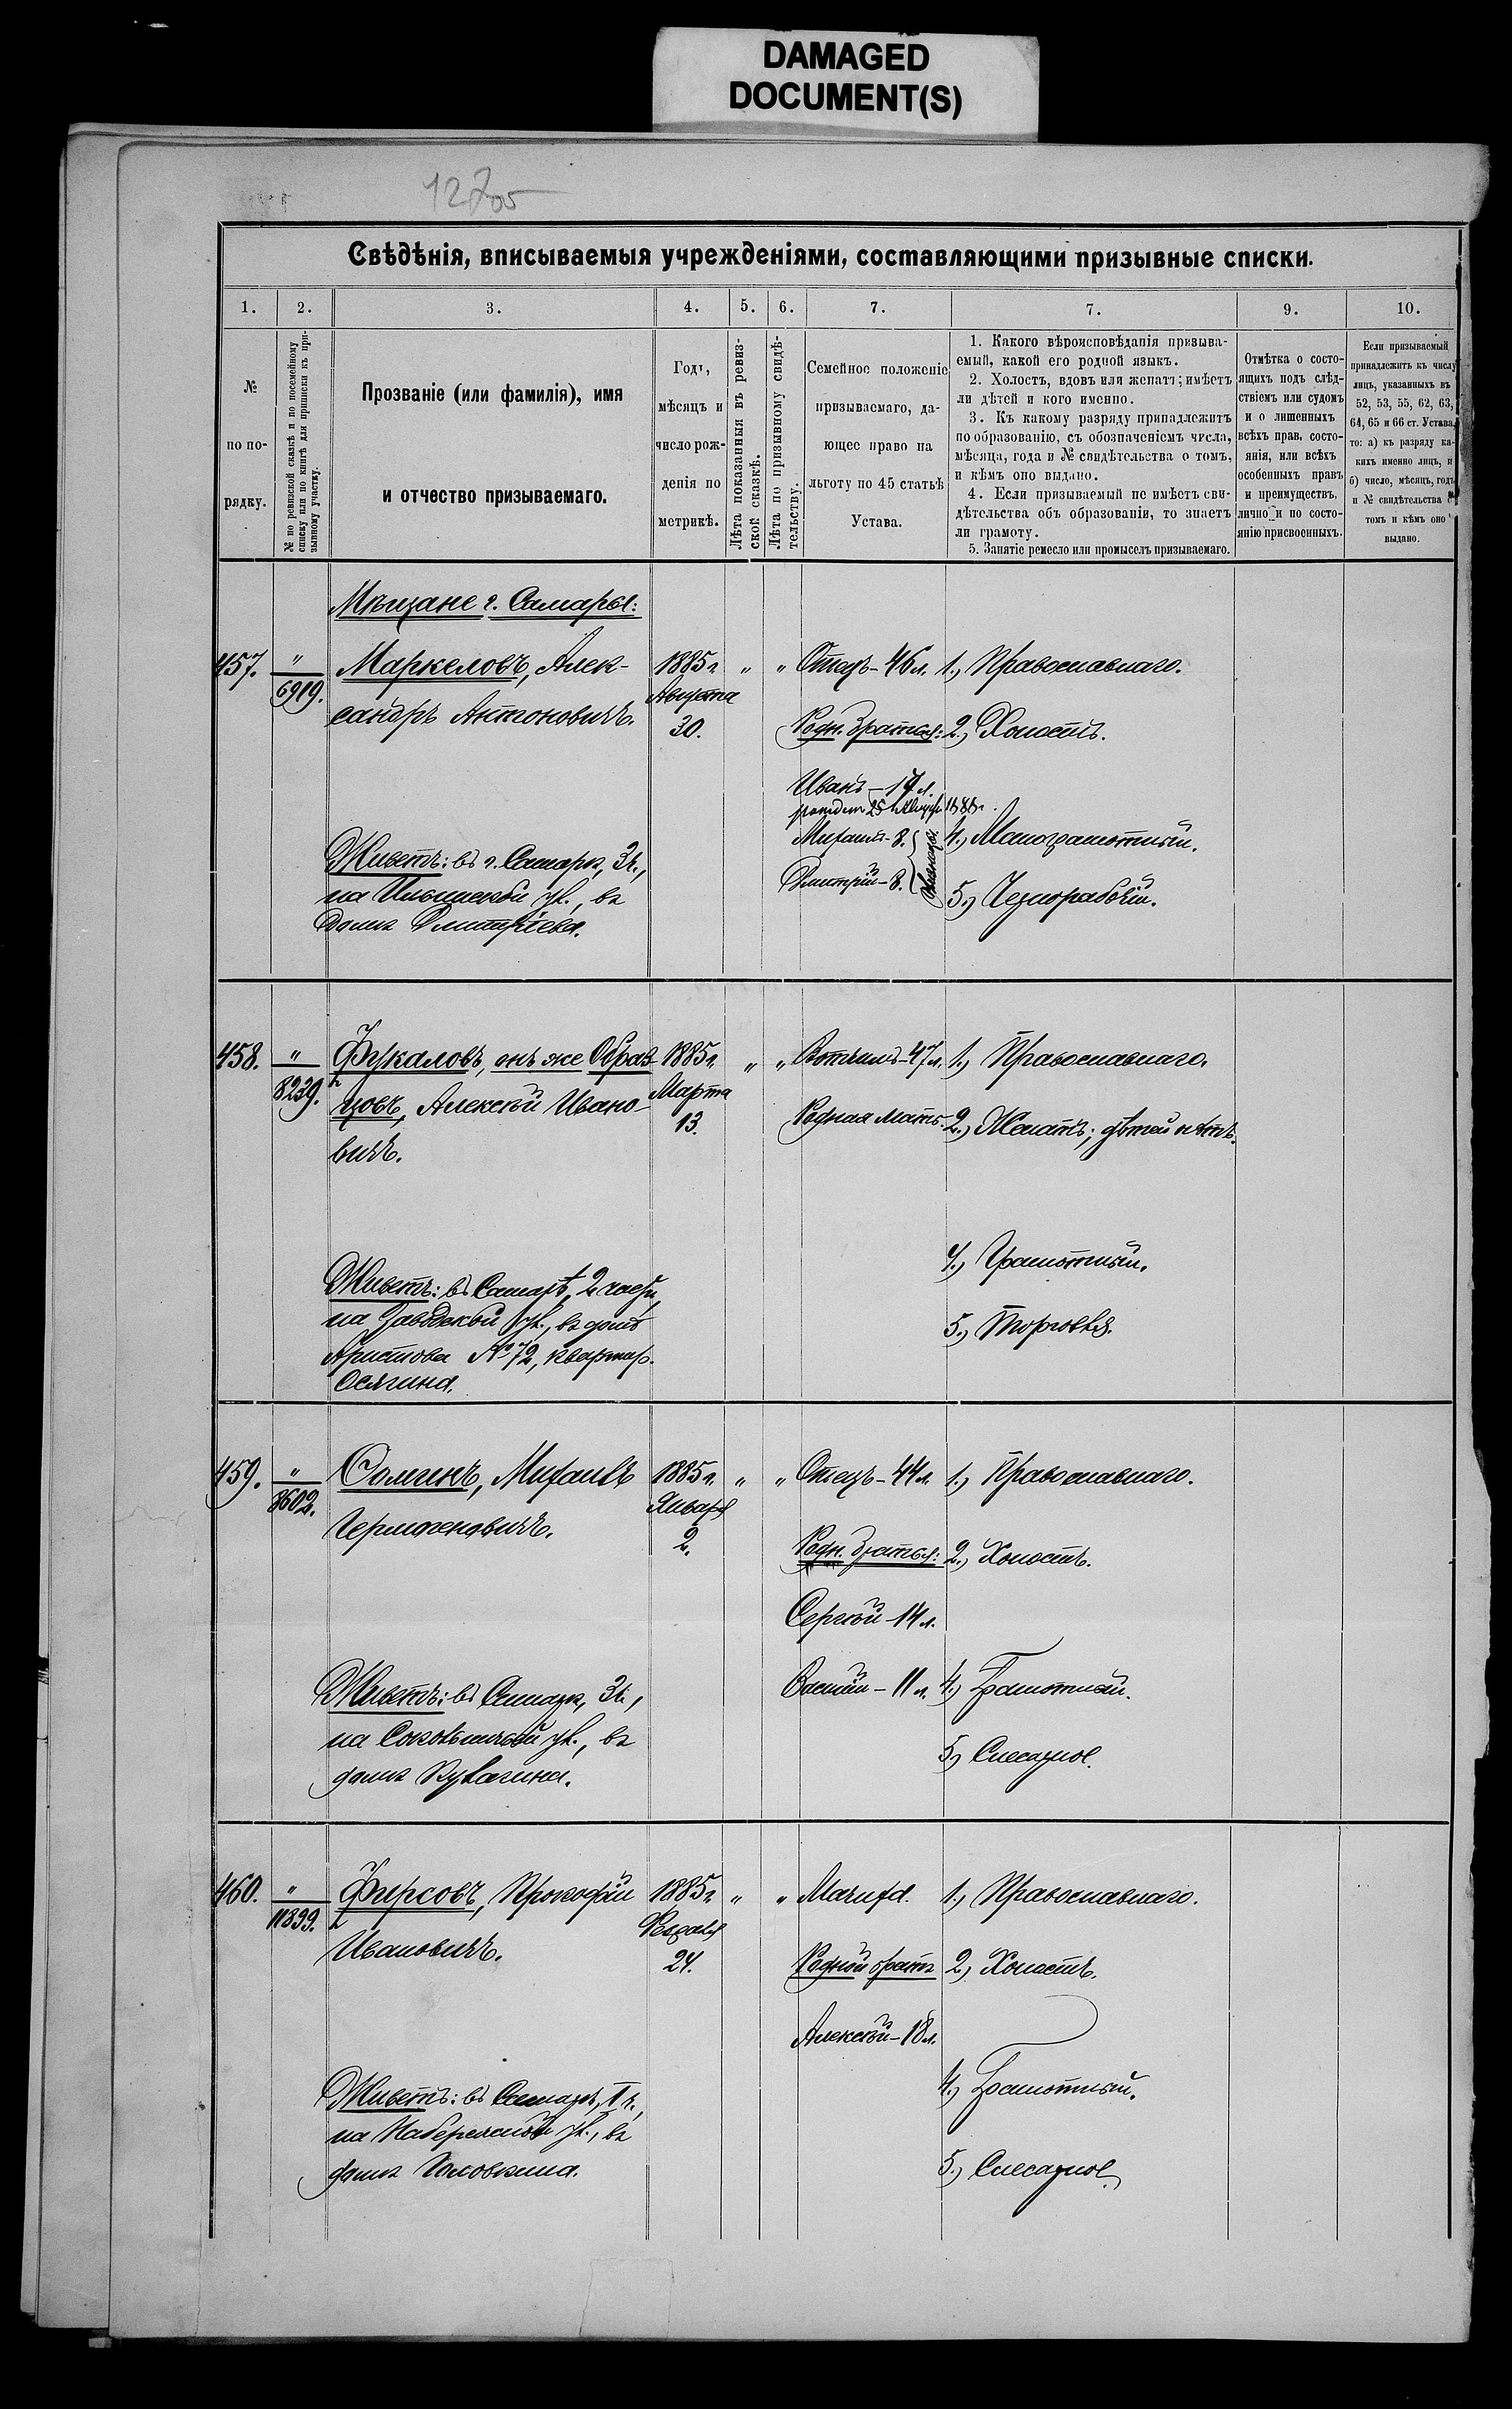 DAMAGED
DOCUMENT(S)
Свѣдѣнія, вписываемыя учрежденіями, составляющими призывные списки.
1. 2. 3. 4. 5. 6. 7. 7. 9. 10.
№
по по-
рядку.
№ по ревизской сказкѣ и по посемейному
списку или по книгѣ для приписки къ при-
зывному участку.
Прозваніе (или фамилія), имя
и отчество призываемаго.
Годъ,
мѣсяцъ и
число рож-
денія по
метрикѣ.
Лѣта показанныя въ ревиз-
ской сказкѣ.
Лѣта по призывному свидѣ-
тельству.
Семейное положеніе
призываемаго, да-
ющее право на
льготу по 45 статьѣ
Устава.
1. Какого вѣроисповѣданія призыва-
емый, какой его родной языкъ.
2. Холостъ, вдовъ или женатъ; имѣетъ
ли дѣтей и кого именно.
3. Къ какому разряду принадлежитъ
по образованію, съ обозначеніемъ числа,
мѣсяца, года и № свидѣтельства о томъ,
и кѣмъ оно выдано.
4. Если призываемый не имѣетъ сви-
дѣтельства объ образованіи, то знаетъ
ли грамоту.
5. Занятіе ремесло или промыселъ призываемаго.
Отмѣтка о состо-
ящихъ подъ слѣд-
ствіемъ или судомъ
и о лишенныхъ
всѣхъ прав, состо-
янія, или всѣхъ
особенныхъ правъ
и преимуществъ,
лично и по состо-
янію присвоенныхъ.
Если призываемый
принадлежитъ къ числу
лицъ, указанныхъ въ
52, 53, 55, 62, 63,
64, 65 и 66 ст. Устава,
то: а) къ разряду ка-
кихъ именно лицъ, и
б) число, мѣсяцъ, годъ
и № свидѣтельства о
томъ и кѣмъ оно
выдано.
Мѣщане г. Самары:
457. " Маркеловъ, Алек- 1885 г. " " Отецъ - 46 л. 1.) Православнаго.
6919. сандръ Антоновичъ. Августа
30. Родн. братья: 2.) Холостъ.
Иванъ - 17 л.
25 1888 г.
Михаилъ - 8. 4.) Малограмотный.
Дмитрій - 8. близнецы
5.) Чернорабочій.
Живетъ: въ г. Самарѣ, 3 ч.,
на Ильинской ул., въ
домѣ Дмитріева.
458. " Фукаловъ, онъ же Образ- 1885 г. " " Вотчимъ - 47 л. 1.) Православнаго.
8239. цовъ, Алексѣй Ивано- Марта
13. Родная мать. 2.) Женатъ; дѣтей нѣтъ.
вичъ.
4.) Грамотный.
5.) Торговля.
Живетъ: въ Самарѣ, 2 части,
на Заводской ул., въ домѣ
Аристова № 72, квартир.
Осягина.
459. " Сомгинъ, Михаилъ 1885 г. " " Отецъ - 44 л. 1.) Православнаго.
8602. Гермогеновичъ. Января
2. Родн. братья: 2.) Холостъ.
Сергѣй - 14 л.
Василій - 11 л. 4.) Грамотный.
5.) Слесарное.
Живетъ: въ Самарѣ, 3 ч.,
на Сокольничьей ул., въ
домѣ
460. " Фирсовъ, Прокофій 1885 г. " " Мачиха. 1.) Православнаго.
11899. Ивановичъ. Февраля
24. Родной братъ 2.) Холостъ.
Алексѣй - 18 л.
4.) Грамотный.
5.) Слесарное.
Живетъ: въ Самарѣ, 1 ч.,
на Набережной ул., въ
домѣ Головкина.